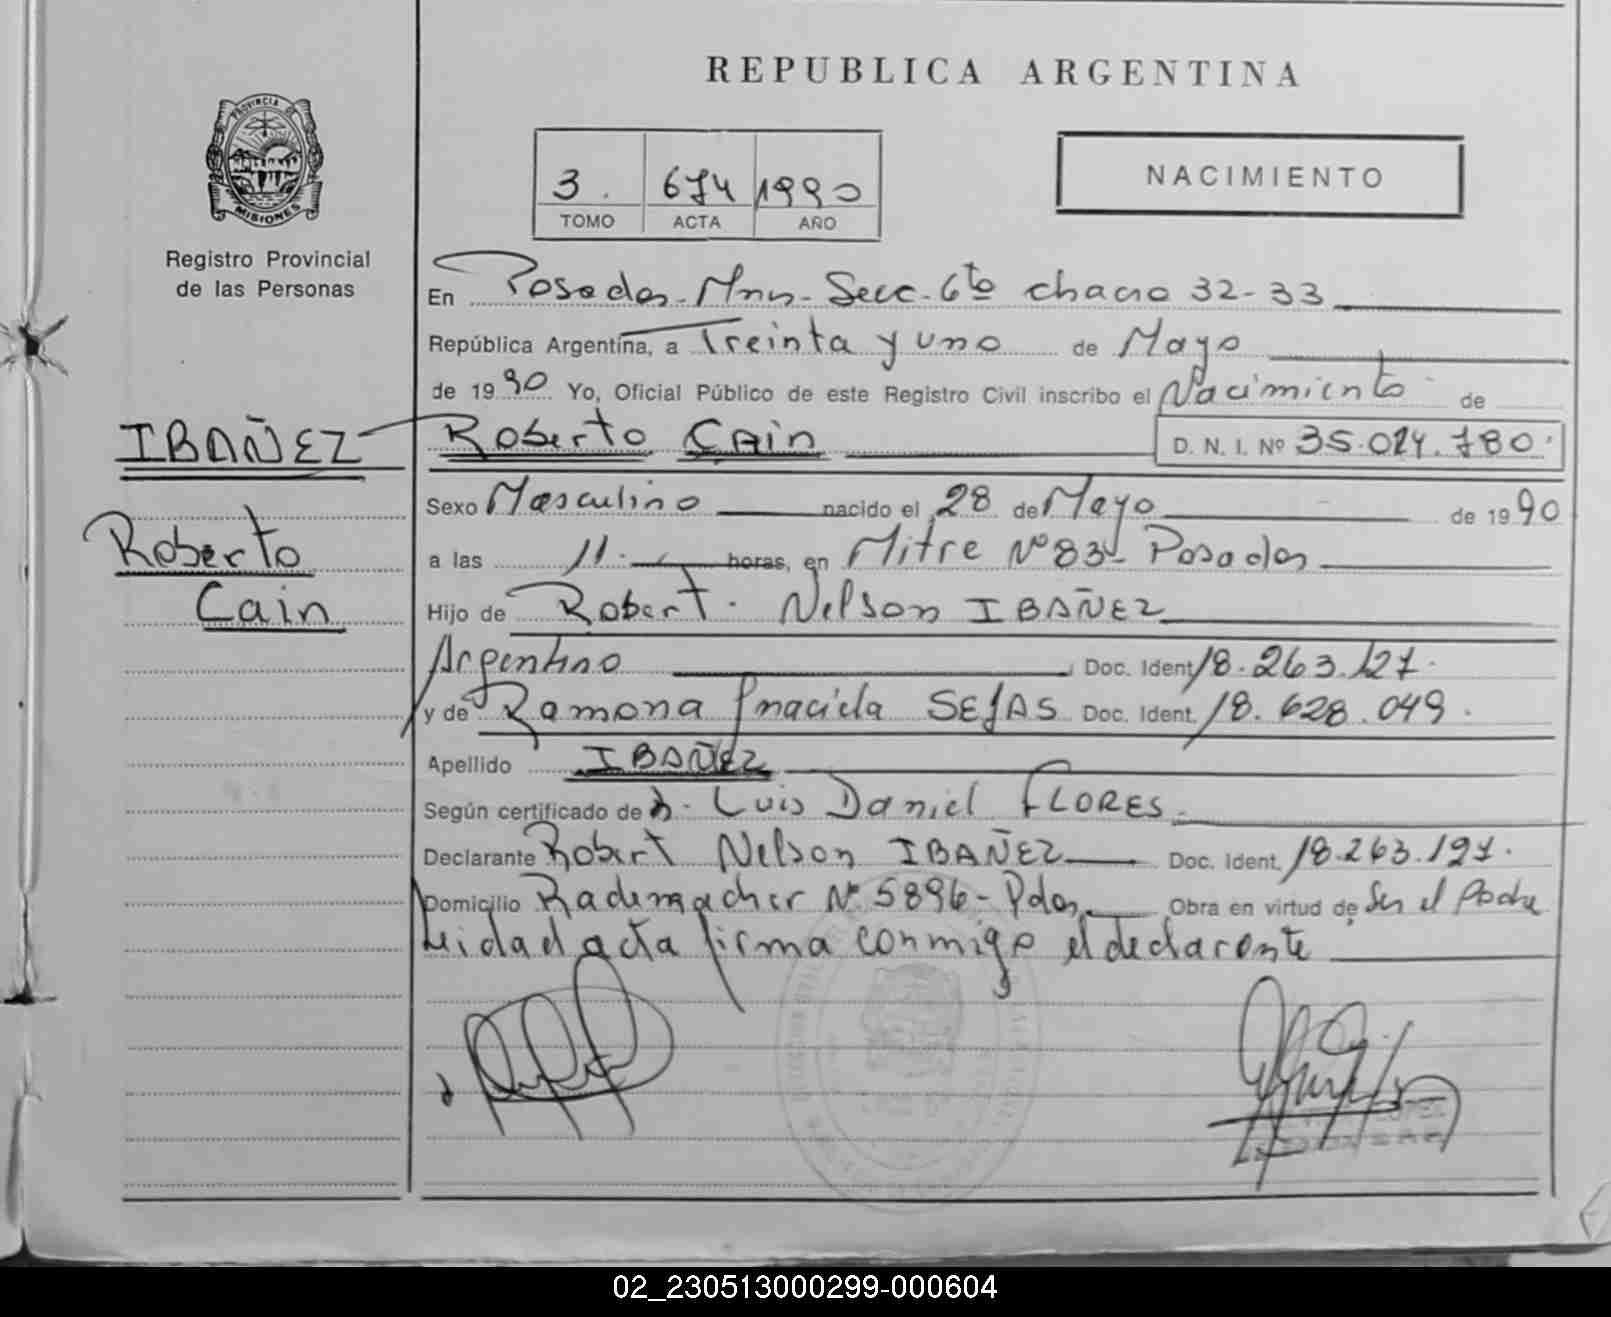 REPUBLICA ARGENTINA
PROVINCIA DE
MISIONES
Registro Provincial
de las Personas
3. 674 1990
TOMO ACTA AÑO
NACIMIENTO
En Posadas-Mns-Secc-6ta chacra 32-33
República Argentina, a Treinta y uno de Mayo
de 1990 Yo, Oficial Público de este Registro Civil inscribo el Nacimiento de
IBAÑEZ Roberto Cain D. N. I. Nº 35.074.780
Sexo Masculino nacido el 28 de Mayo de 1990
Roberto
Cain
a las 11.- horas, en Mitre Nº 83- Posadas
Hijo de Robert. Nelson IBAÑEZ
Argentino Doc. Ident. 18.263.127.
y de Ramona SEJAS Doc. Ident. 18.628.049.
Apellido IBAÑEZ
Según certificado de Luis Daniel FLORES.
Declarante Robert Nelson IBAÑEZ Doc. Ident. 18.263.127.
Domicilio Rademacher Nº 5896- Pdas. Obra en virtud de Ser el Padre
Leida el acta firma conmigo el declarante
02_230513000299-000604